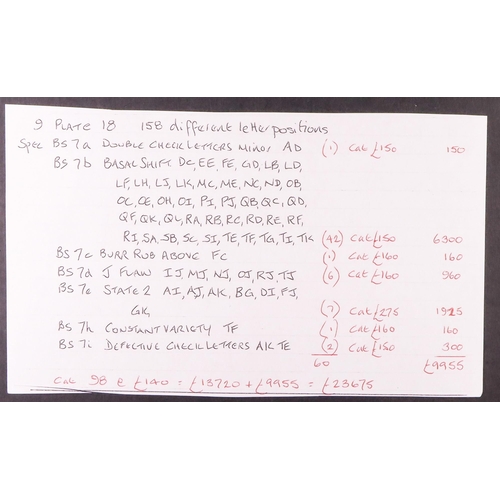 9 PLATE 18 158 different letter positions
Spec BS 7a DOUBLE CHECK LETTERS MINOR AD (1) Cat £150 150
BS 7b BASAL SHIFT. DC, EE, FE, GD, LB, LD,
LF, LH, LJ, LK, MC, ME, NC, ND, OB,
OC, OE, OH, OI, PI, PJ, QB, QC, QD,
QF, QK, QL, RA, RB, RC, RD, RE, RF,
RI, SA, SB, SC, SI, TE, TF, TG, TI, TK (42) Cat £150 6300
BS 7c BURR RUB ABOVE FC (1) Cat £160 160
BS 7d J FLAW IJ, MJ, NJ, OJ, RJ, TJ (6) Cat £160 960
BS 7e STATE 2 AI, AJ, AK, BG, DI, FJ,
GK, (7) Cat £275 1925
BS 7h CONSTANT VARIETY TF (1) Cat £160 160
BS 7i DEFECTIVE CHECK LETTERS AK TE (2) Cat £150 300
60 £9955
Cat 98 @ £140 = £13720 + £9955 = £23675